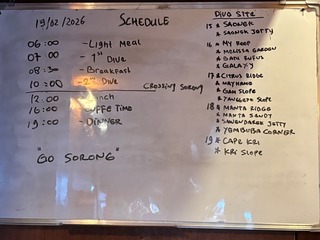 19/02/2026 SCHEDULE
06:00 - Light Meal
07 00 - 1st Dive
08:30 - Breakfast
10:00 - 2nd Dive
CROSSING SORONG
12.00
16:00 - Time
19:00 - DINNER
"GO SORONG"
DIVE SITE
15 * SAONEK
* SAONEK JETTY
16 * MY REEF
* MELISSA GARDEN
* BATU RUFUS
* GALAXY
17 * CITRUS RIDGE
* MAYHAND
* GAM SLOPE
* SLOPE
18 * MANTA RIDGE
* MANTA SANDY
* SAWANDAREK JETTY
* YENBUBA CORNER
19 * CAPE KRI
* KRI SLOPE